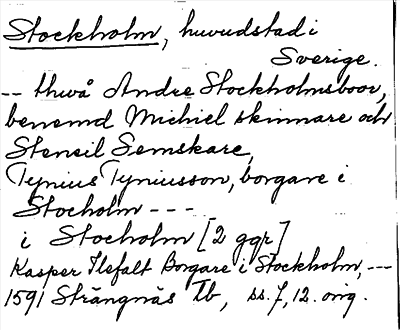 Stockholm, huvudstad i
Sverige.
-- thuå Andre Stockholmsboor,
benemd Michiel skinnare och
Stensil Semskare,
Tynius Tyniusson, borgare i
Stocholm ---
i Stocholm [2 ggr]
Kasper Ilefalt Borgare i Stockholm, ---
1591 Strängnäs Tb, ss. 7, 12. orig.